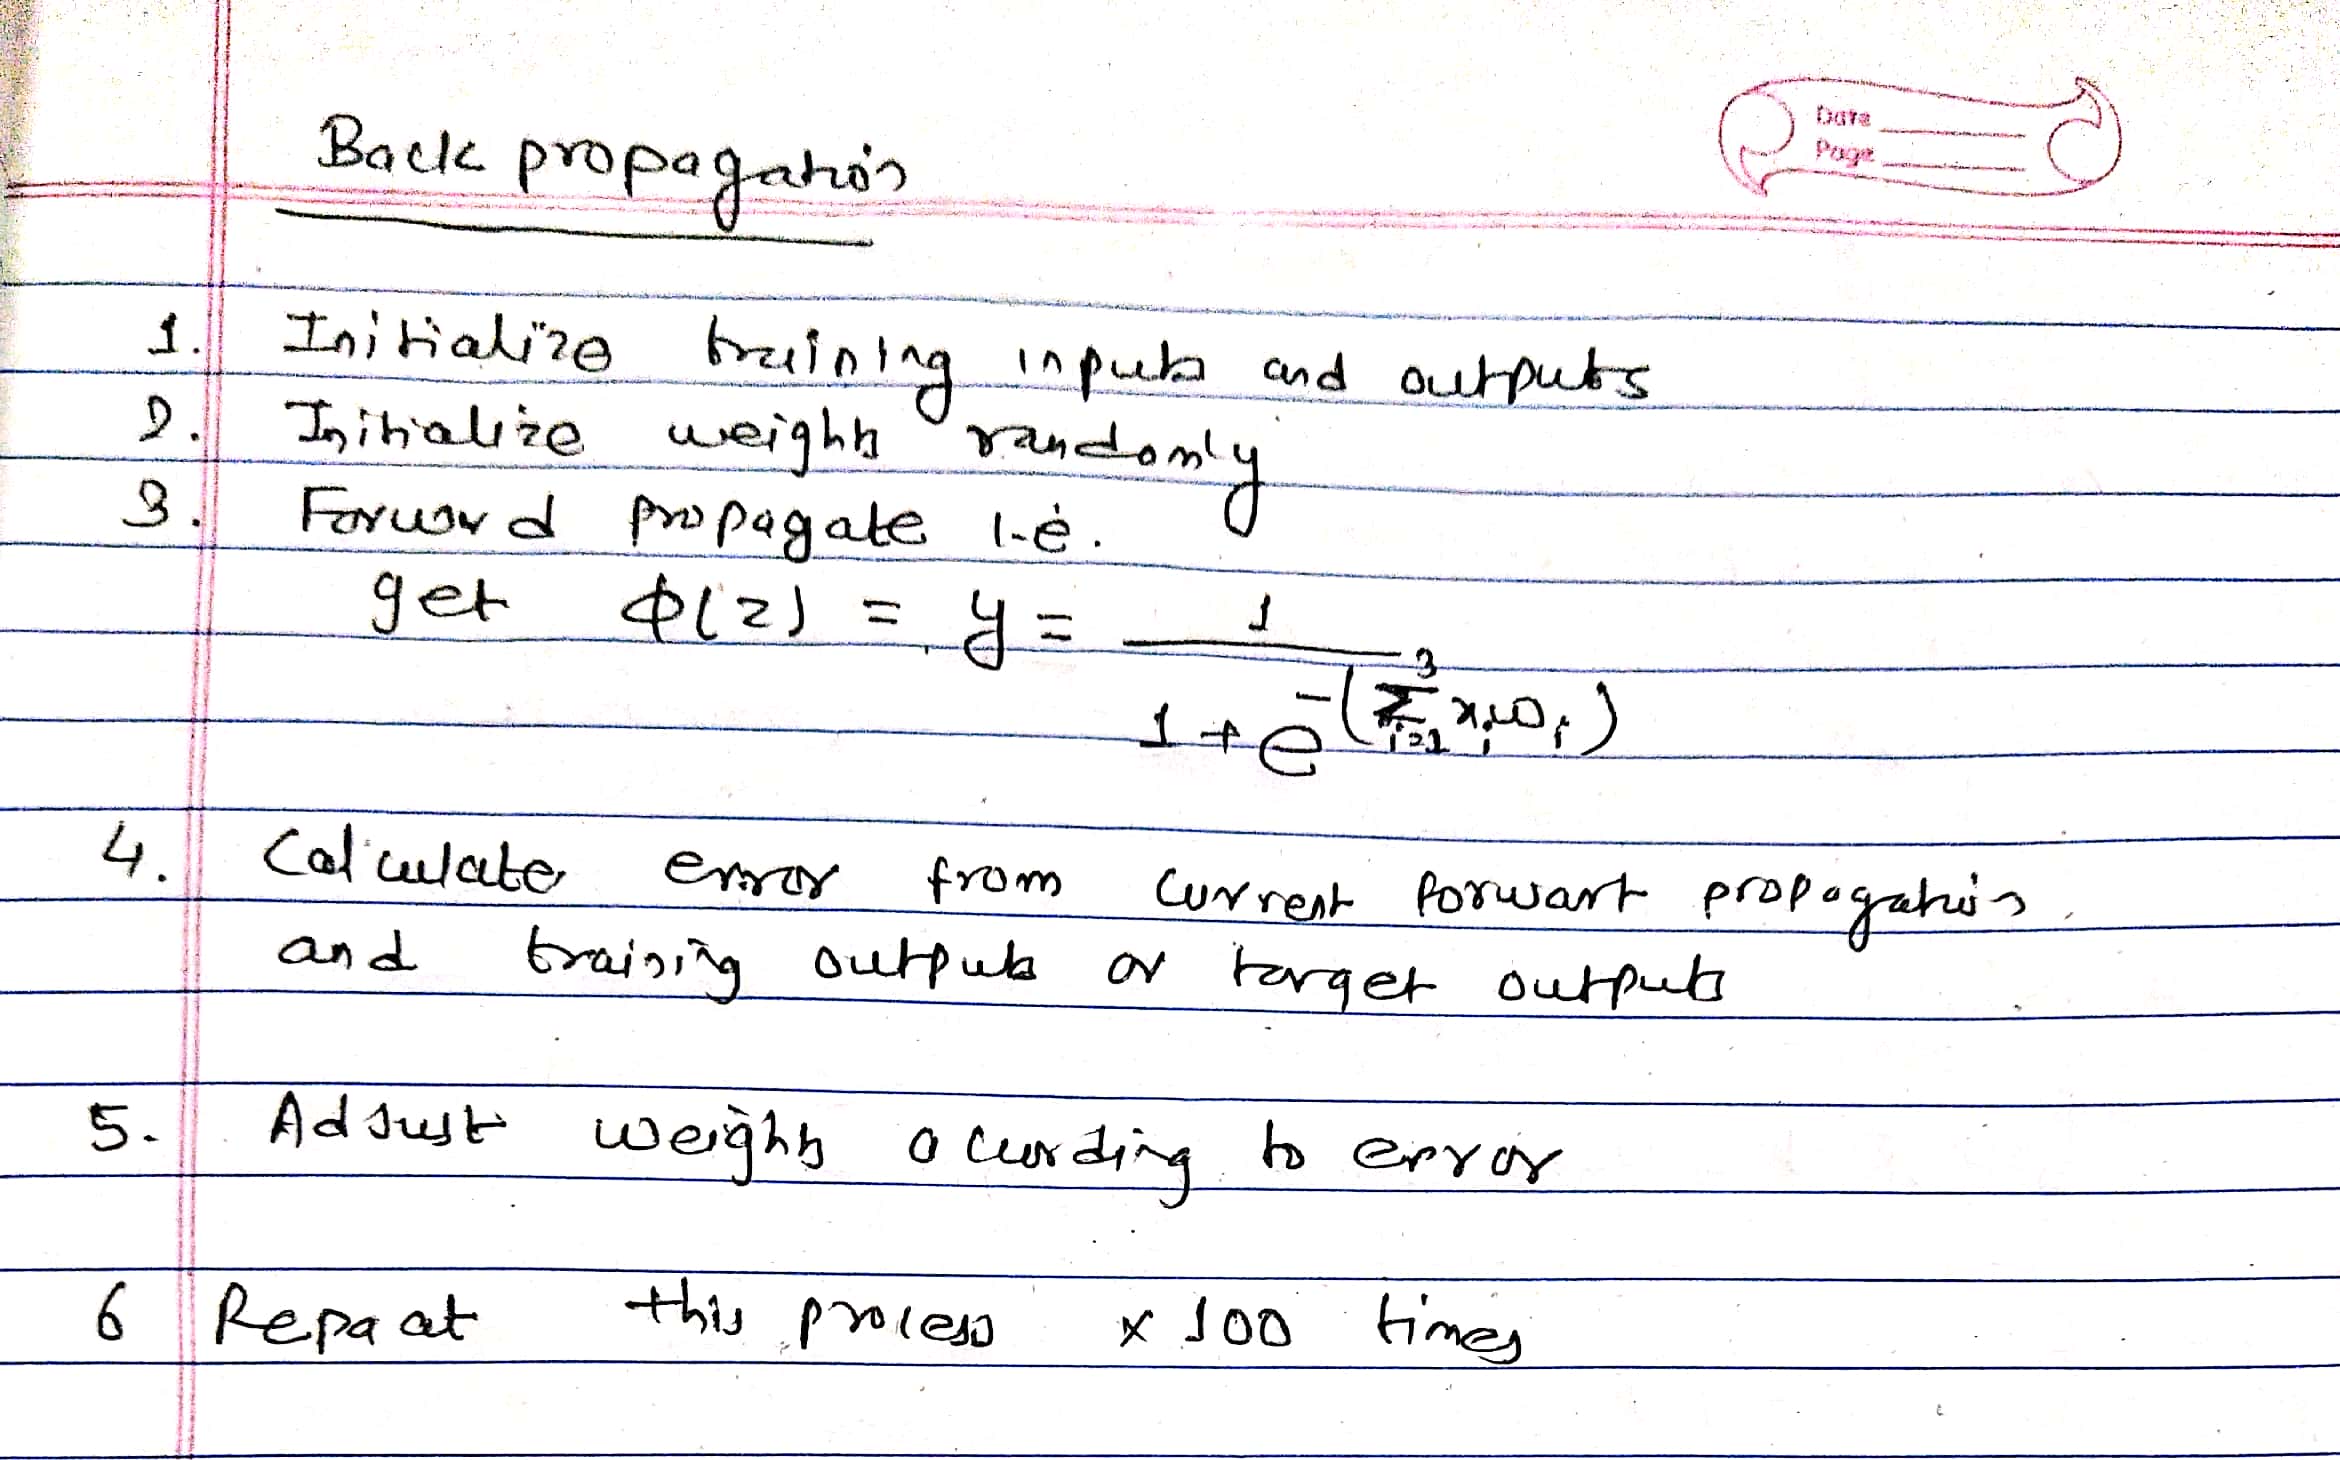 Date
Page
Back propagation
1. Initialize training inputs and outputs
2. Initialize weights randomly
3. Forward propagate i.e.
get ϕ(z) = y = 1 / 1 + e^-(∑_{i=1}^{3} x_i w_i)
4. Calculate error from current forwart propagation
and training outputs or target outputs
5. Adjust weights acording to error
6 Repaat this process x 100 times